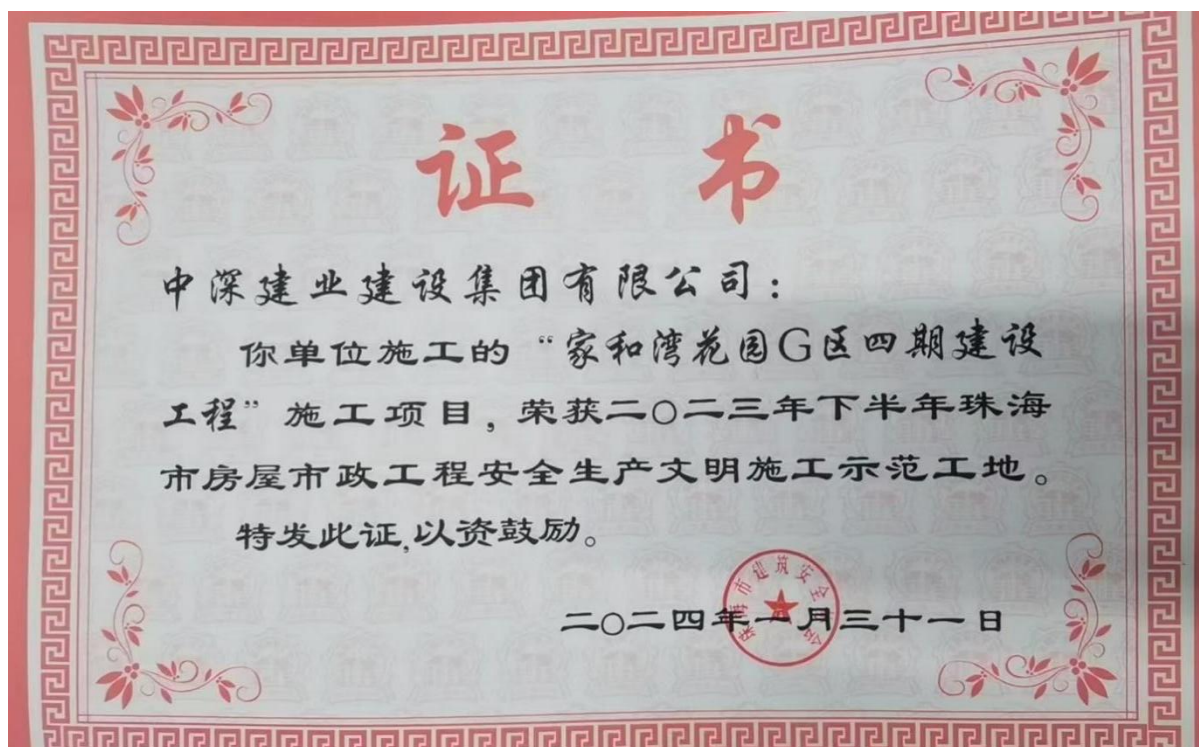 证 书
中深建业建设集团有限公司：
你单位施工的“家和湾花园G区四期建设
工程”施工项目，荣获二〇二三年下半年珠海
市房屋市政工程安全生产文明施工示范工地。
特发此证,以资鼓励。
珠海市建筑安全协会
二〇二四年一月三十一日